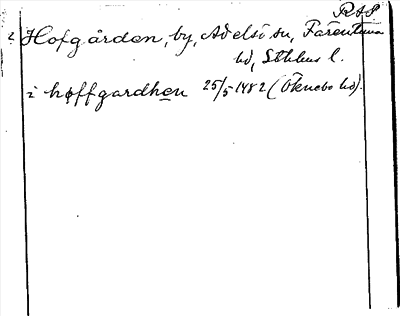 RAP
? Hofgården, by, Adelsö sn, Färentuna
hd, Sthlms l.
i høffgardhen 25/5 1482 (Öknebo hd).